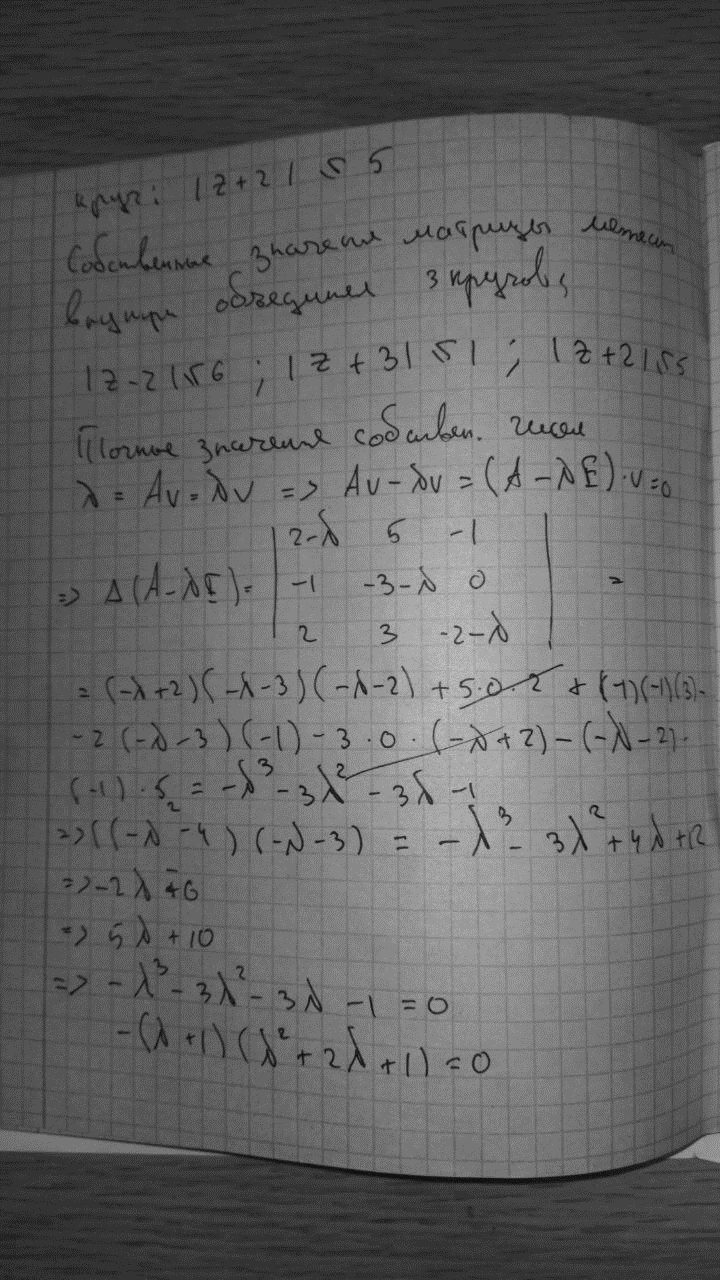 круг: |z+2| ≤ 5
Собственные значения матрицы лежат
внутри объединия 3 кругов:
|z-2|≤6 ; |z+3|≤1 ; |z+2|≤5
Точные значения собствен. чисел
λ = Av = λv => Av - λv = (A - λE)·v=0
2-λ 5 -1
=> Δ(A-λE)= -1 -3-λ 0 =
2 3 -2-λ
= (-λ+2)(-λ-3)(-λ-2) + 5·0·2 + (-1)(-1)(3)-
-2(-λ-3)(-1) - 3·0·(-λ+2) - (-λ-2)·
(-1)·5 = -λ³ - 3λ² - 3λ - 1
=> ((-λ² - 4)(-λ-3) = -λ³ - 3λ² + 4λ + 12
=> -2λ - 6
=> 5λ + 10
=> -λ³ - 3λ² - 3λ - 1 = 0
-(λ+1)(λ²+2λ+1) = 0